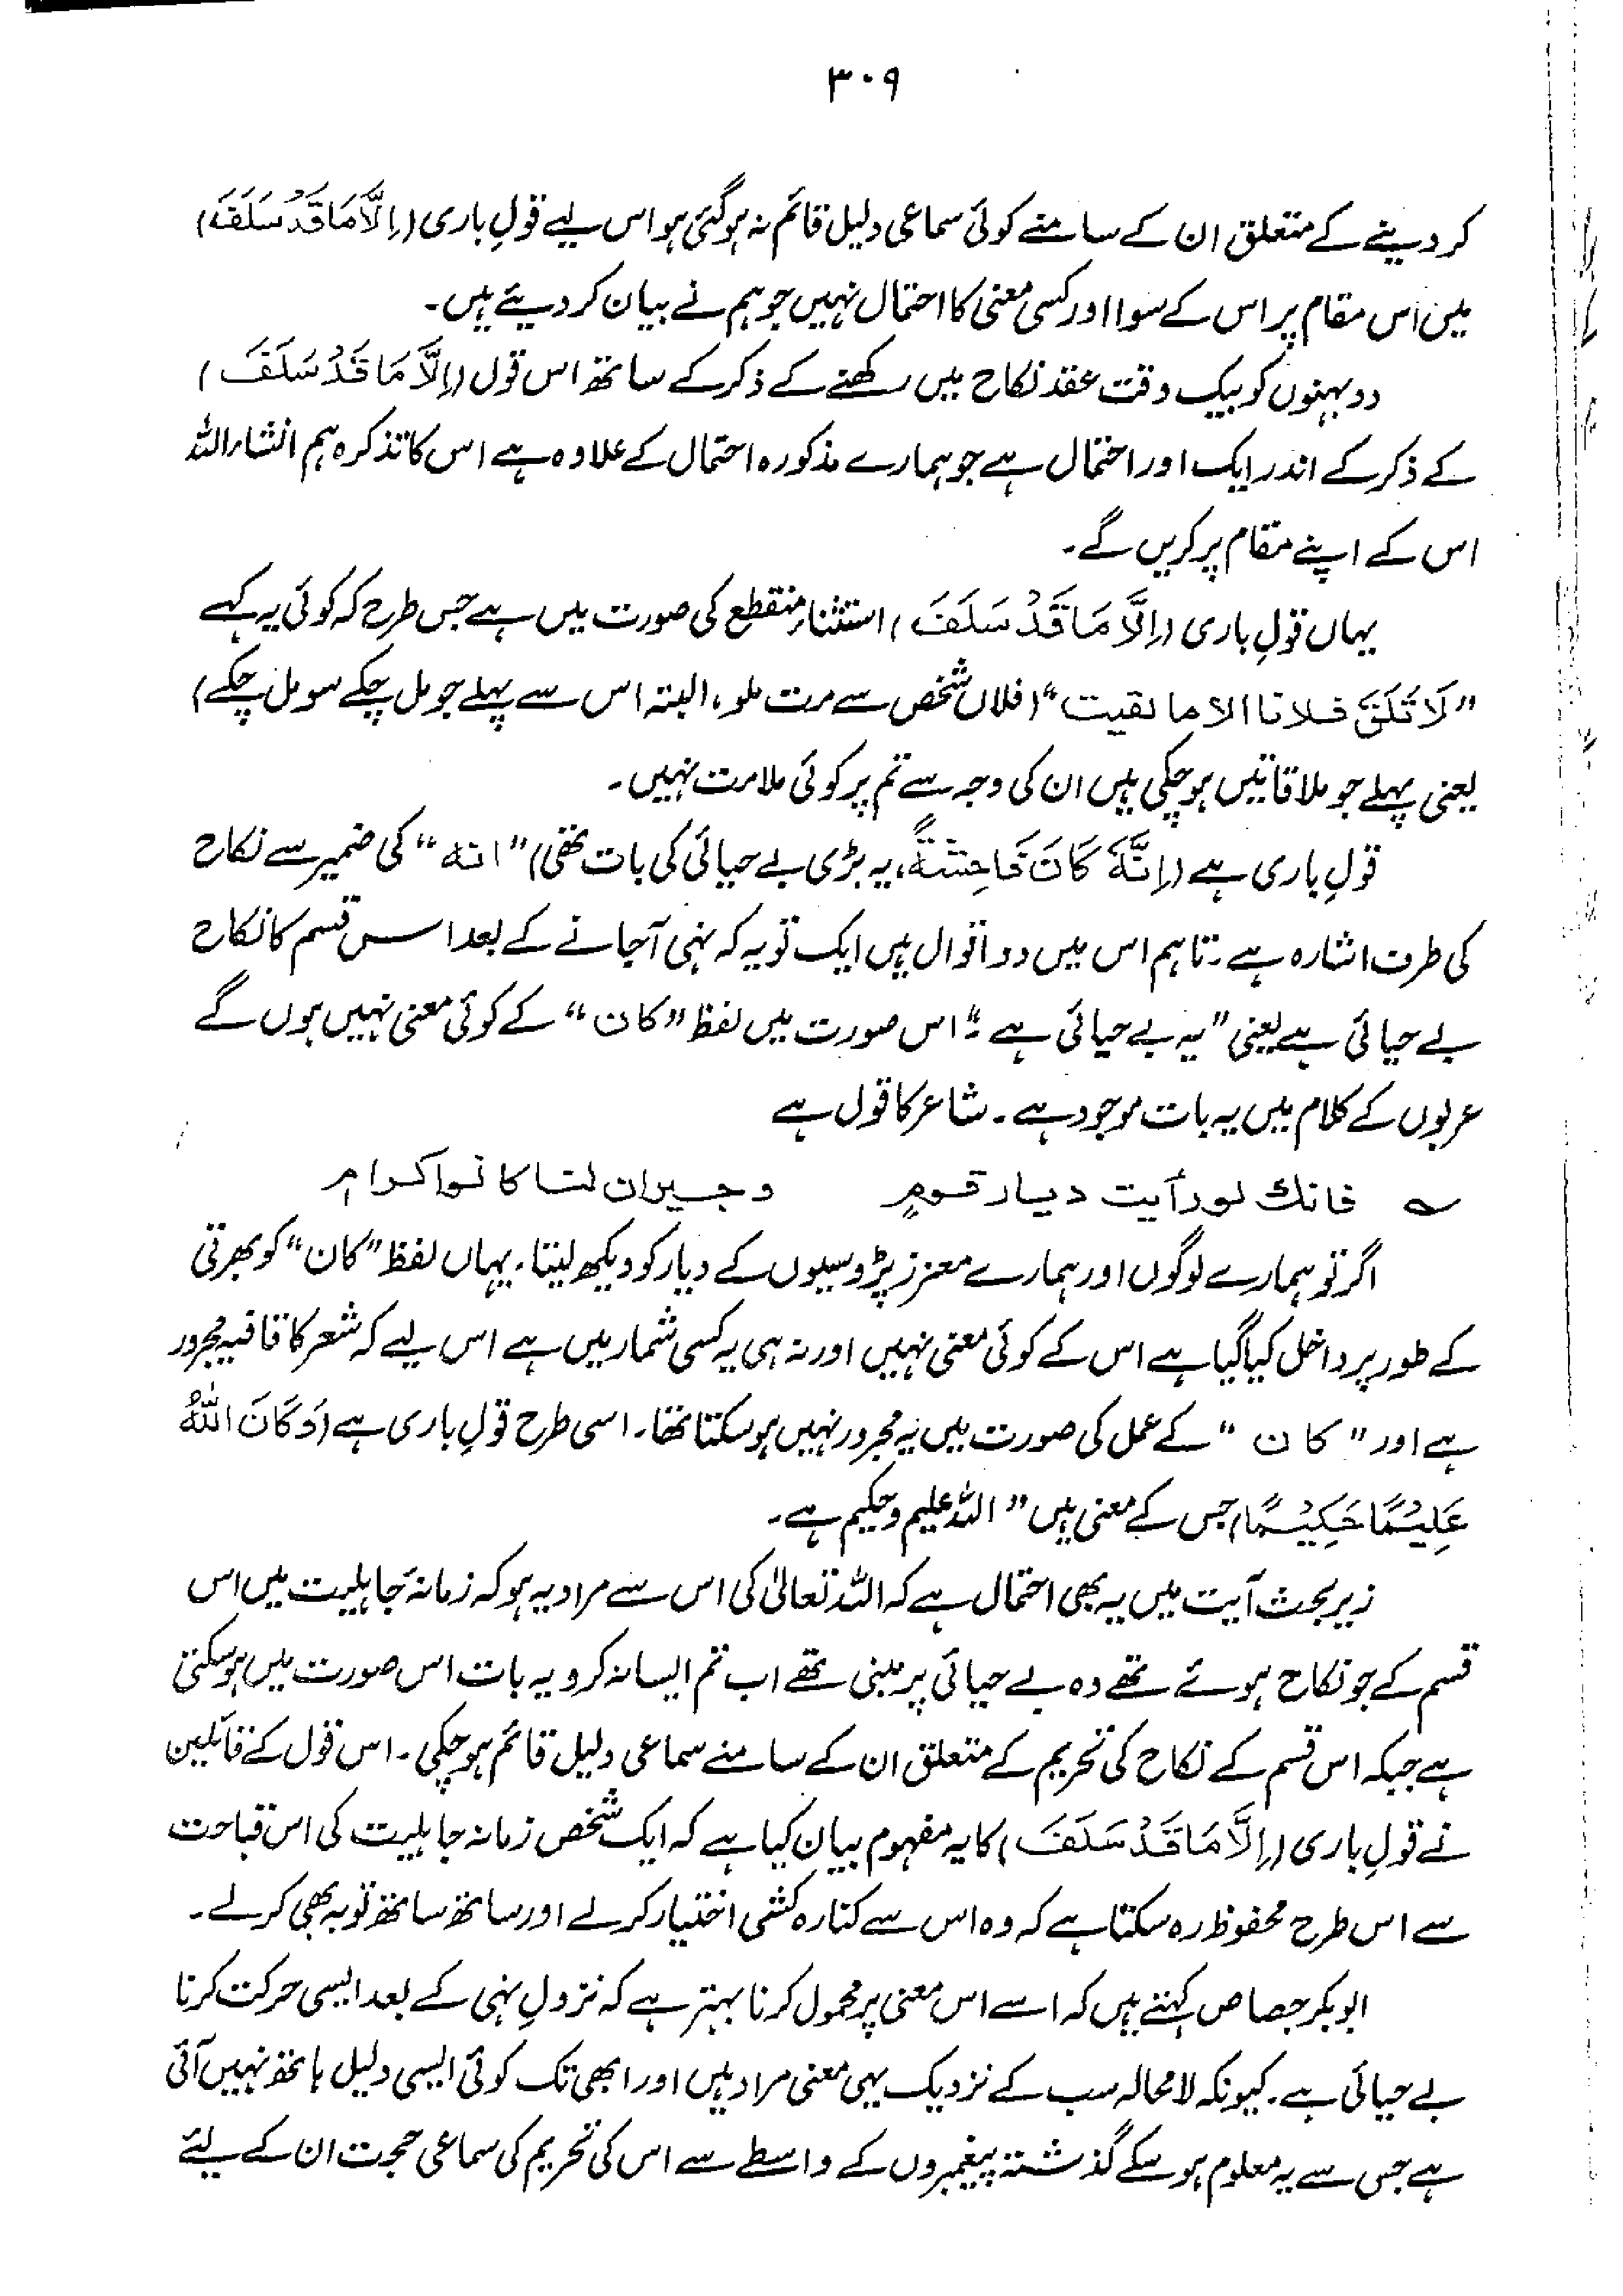 ۳۰۹
کر دینے کے متعلق ان کے سامنے کوئی سماعی دلیل قائم نہ ہوگئی ہو اس لیے قولِ باری (اِلَّا مَا قَدْ سَلَفَ)
میں اس مقام پر اس کے سوا اور کسی معنی کا احتمال نہیں جو ہم نے بیان کر دیئے ہیں۔
دو بہنوں کو بیک وقت عقد نکاح میں رکھنے کے ذکر کے ساتھ اس قول (اِلَّا مَا قَدْ سَلَفَ)
کے ذکر کے اندر ایک اور احتمال ہے جو ہمارے مذکورہ احتمال کے علاوہ ہے اس کا تذکرہ ہم انشاء اللہ
اس کے اپنے مقام پر کریں گے۔
یہاں قولِ باری (اِلَّا مَا قَدْ سَلَفَ) استثناءِ منقطع کی صورت میں ہے جس طرح کہ کوئی یہ کہے
"لَا تَلْقَ فلانا الا ما لقیت" (فلاں شخص سے مت ملو، البتہ اس سے پہلے جو مل چکے سو مل چکے)
یعنی پہلے جو ملاقاتیں ہو چکی ہیں ان کی وجہ سے تم پر کوئی ملامت نہیں۔
قولِ باری ہے (اِنَّهٗ کَانَ فَاحِشَةً، یہ بڑی بے حیائی کی بات تھی) "انه" کی ضمیر سے نکاح
کی طرف اشارہ ہے۔ تاہم اس میں دو اقوال ہیں ایک تو یہ کہ نہی آجانے کے بعد اس قسم کا نکاح
بے حیائی ہے یعنی "یہ بے حیائی ہے"۔ اس صورت میں لفظ "کان" کے کوئی معنی نہیں ہوں گے
عربوں کے کلام میں یہ بات موجود ہے۔ شاعر کا قول ہے
؎ فانك لو رأیت دیار قومٍ و جیران لنا کانوا کرام
اگر تو ہمارے لوگوں اور ہمارے معزز پڑوسیوں کے دیار کو دیکھ لیتا۔ یہاں لفظ "کان" کو بھرتی
کے طور پر داخل کیا گیا ہے اس کے کوئی معنی نہیں اور نہ ہی یہ کسی شمار میں ہے اس لیے کہ شعر کا قافیہ مجرور
ہے اور "کان" کے عمل کی صورت میں یہ مجرور نہیں ہو سکتا تھا۔ اسی طرح قولِ باری ہے (وَکَانَ اللّٰهُ
عَلِیْمًا حَکِیْمًا) جس کے معنی ہیں "اللہ علیم و حکیم ہے۔
زیر بحث آیت میں یہ بھی احتمال ہے کہ اللہ تعالیٰ کی اس سے مراد یہ ہو کہ زمانۂ جاہلیت میں اس
قسم کے جو نکاح ہوئے تھے وہ بے حیائی پر مبنی تھے اب تم ایسا نہ کرو یہ بات اس صورت میں ہو سکتی
ہے جبکہ اس قسم کے نکاح کی تحریم کے متعلق ان کے سامنے سماعی دلیل قائم ہو چکی۔ اس قول کے قائلین
نے قولِ باری (اِلَّا مَا قَدْ سَلَفَ) کا یہ مفہوم بیان کیا ہے کہ ایک شخص زمانہ جاہلیت کی اس قباحت
سے اس طرح محفوظ رہ سکتا ہے کہ وہ اس سے کنارہ کشی اختیار کرلے اور ساتھ ساتھ توبہ بھی کرلے۔
ابوبکر جصاص کہتے ہیں کہ اسے اس معنی پر محمول کرنا بہتر ہے کہ نزولِ نہی کے بعد ایسی حرکت کرنا
بے حیائی ہے۔ کیونکہ لامحالہ سب کے نزدیک یہی معنی مراد ہیں اور ابھی تک کوئی ایسی دلیل ہاتھ نہیں آئی
ہے جس سے یہ معلوم ہو سکے گذشتہ پیغمبروں کے واسطے سے اس کی تحریم کی سماعی حجت ان کے لیئے